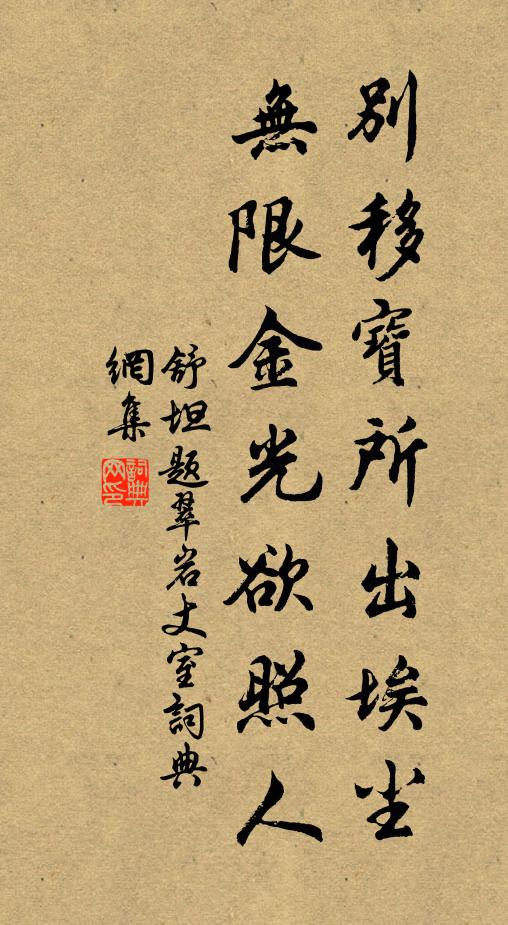 別移寶所出埃坐
無限金光欲照人
舒坦題翠岩丈室詞典
網集
詞典
网印